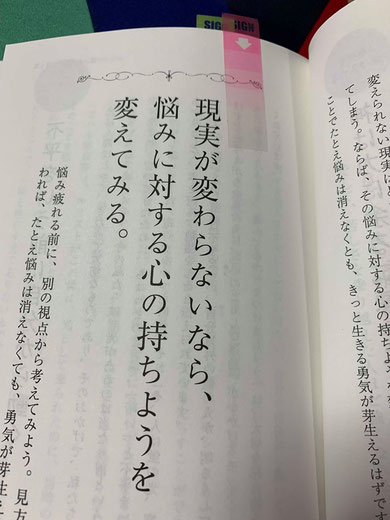 SIGN
変えられない現実に
てしまう。ならば、その悩みに対する心の持ちよう
ことでたとえ悩みは消えなくとも、きっと生きる勇気が芽生えるはずです
現実が変わらないなら、
悩みに対する心の持ちようを
変えてみる。
悩み疲れる前に、別の視点から考えてみよう。見方
われば、たとえ悩みは消えなくても、勇気が芽生え
不平